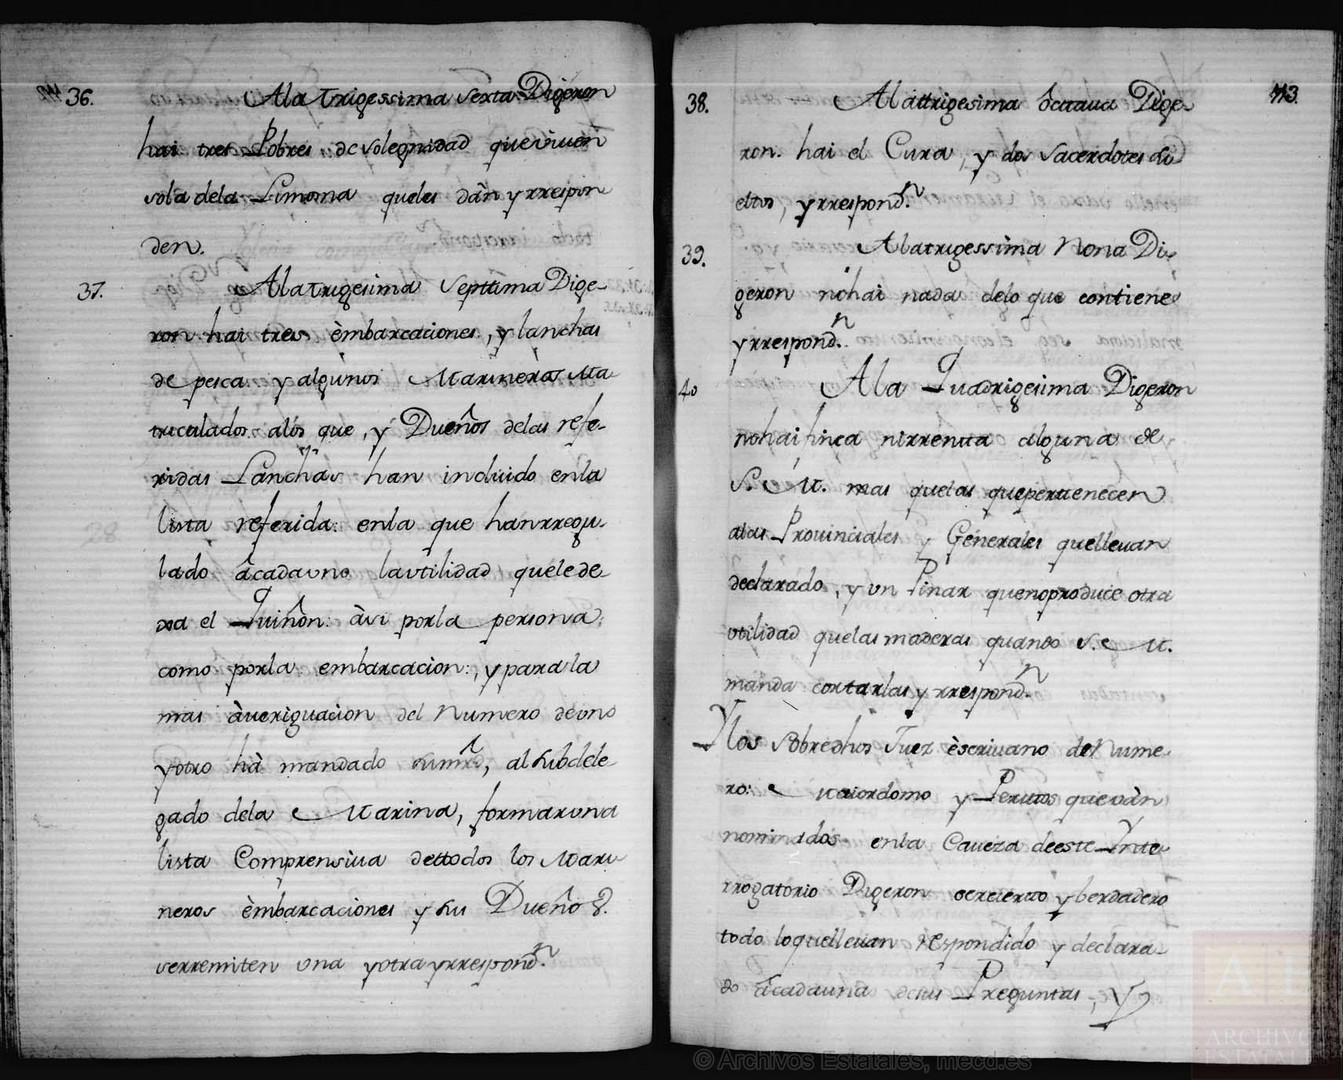 36. Ala trigessima sexta Digeron
hai tres Pobres de solegnidad queviuen
sola dela Limosna queles dàn yrrespon
den.
37. Alatrigesima Septtima Dige-
ron hai tres èmbarcaciones, y lanchas
de pesca yalgunos Marineros Ma
triculados alós que, y Dueños delas refe-
ridas Lanchas han incluido enla
lista referida: enla que hanrregu-
lado àcadauno lautilidad quelede-
xa el Quiñòn: àsi porla persona,
como porla embarcaciòn:, yparala
mas àueriguaciòn del Numero deuno
yotro hà mandado sumrd, al subdele
gado dela Marina, formaruna
lista Comprensiua dettodos los Mari
neros èmbarcaciones y sus Dueños.
serremiten una yotra yrrespondn.
38. Alattrigesima òcttaua Dige-
ron. hai el Cura, y dos Sacerdotes di
cttos, yrrespondn.
39. Alatrigessima Nona Di-
geron nohai nada delo que contiene
yrrespondn.
40 Ala Quadrigesima Digeron
nohai finca nirrentta alguna de
S. M. mas quelas quepertenecen
alas Prouinciales y Generales quelleuan
declarado, y un Pinar quenoproduce otra
utilidad quelas maderas quando S. M.
manda cortarlas yrrespondn.
Ylos sobredhos Juez èscriuano deNume-
ro: Maiordomo y Peritos quevàn
nominados enla Caueza deeste Ynte-
rrogatorio Digeron sercierto y berdadero
todo loquelleuan respondido y declara-
do àcadauna desus Preguntas, Y
113.
© Archivos Estatales, mecd.es
AE
ARCHIVOS
ESTATALES